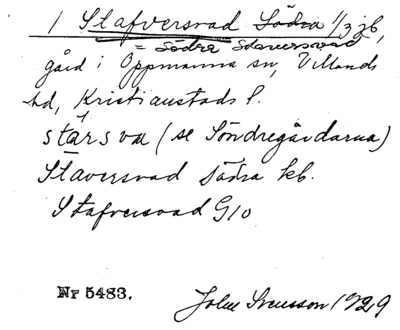 1 Stafversvad Södra 1/3 jb,
= Södra Staversvad
gård i Oppmanna sn, Villands
hd, Kristianstads l.
stársva (se Söndregårdarna)
Staversvad Södra kb.
Stafversvad G10
Nr 5483.
John Svensson 1929